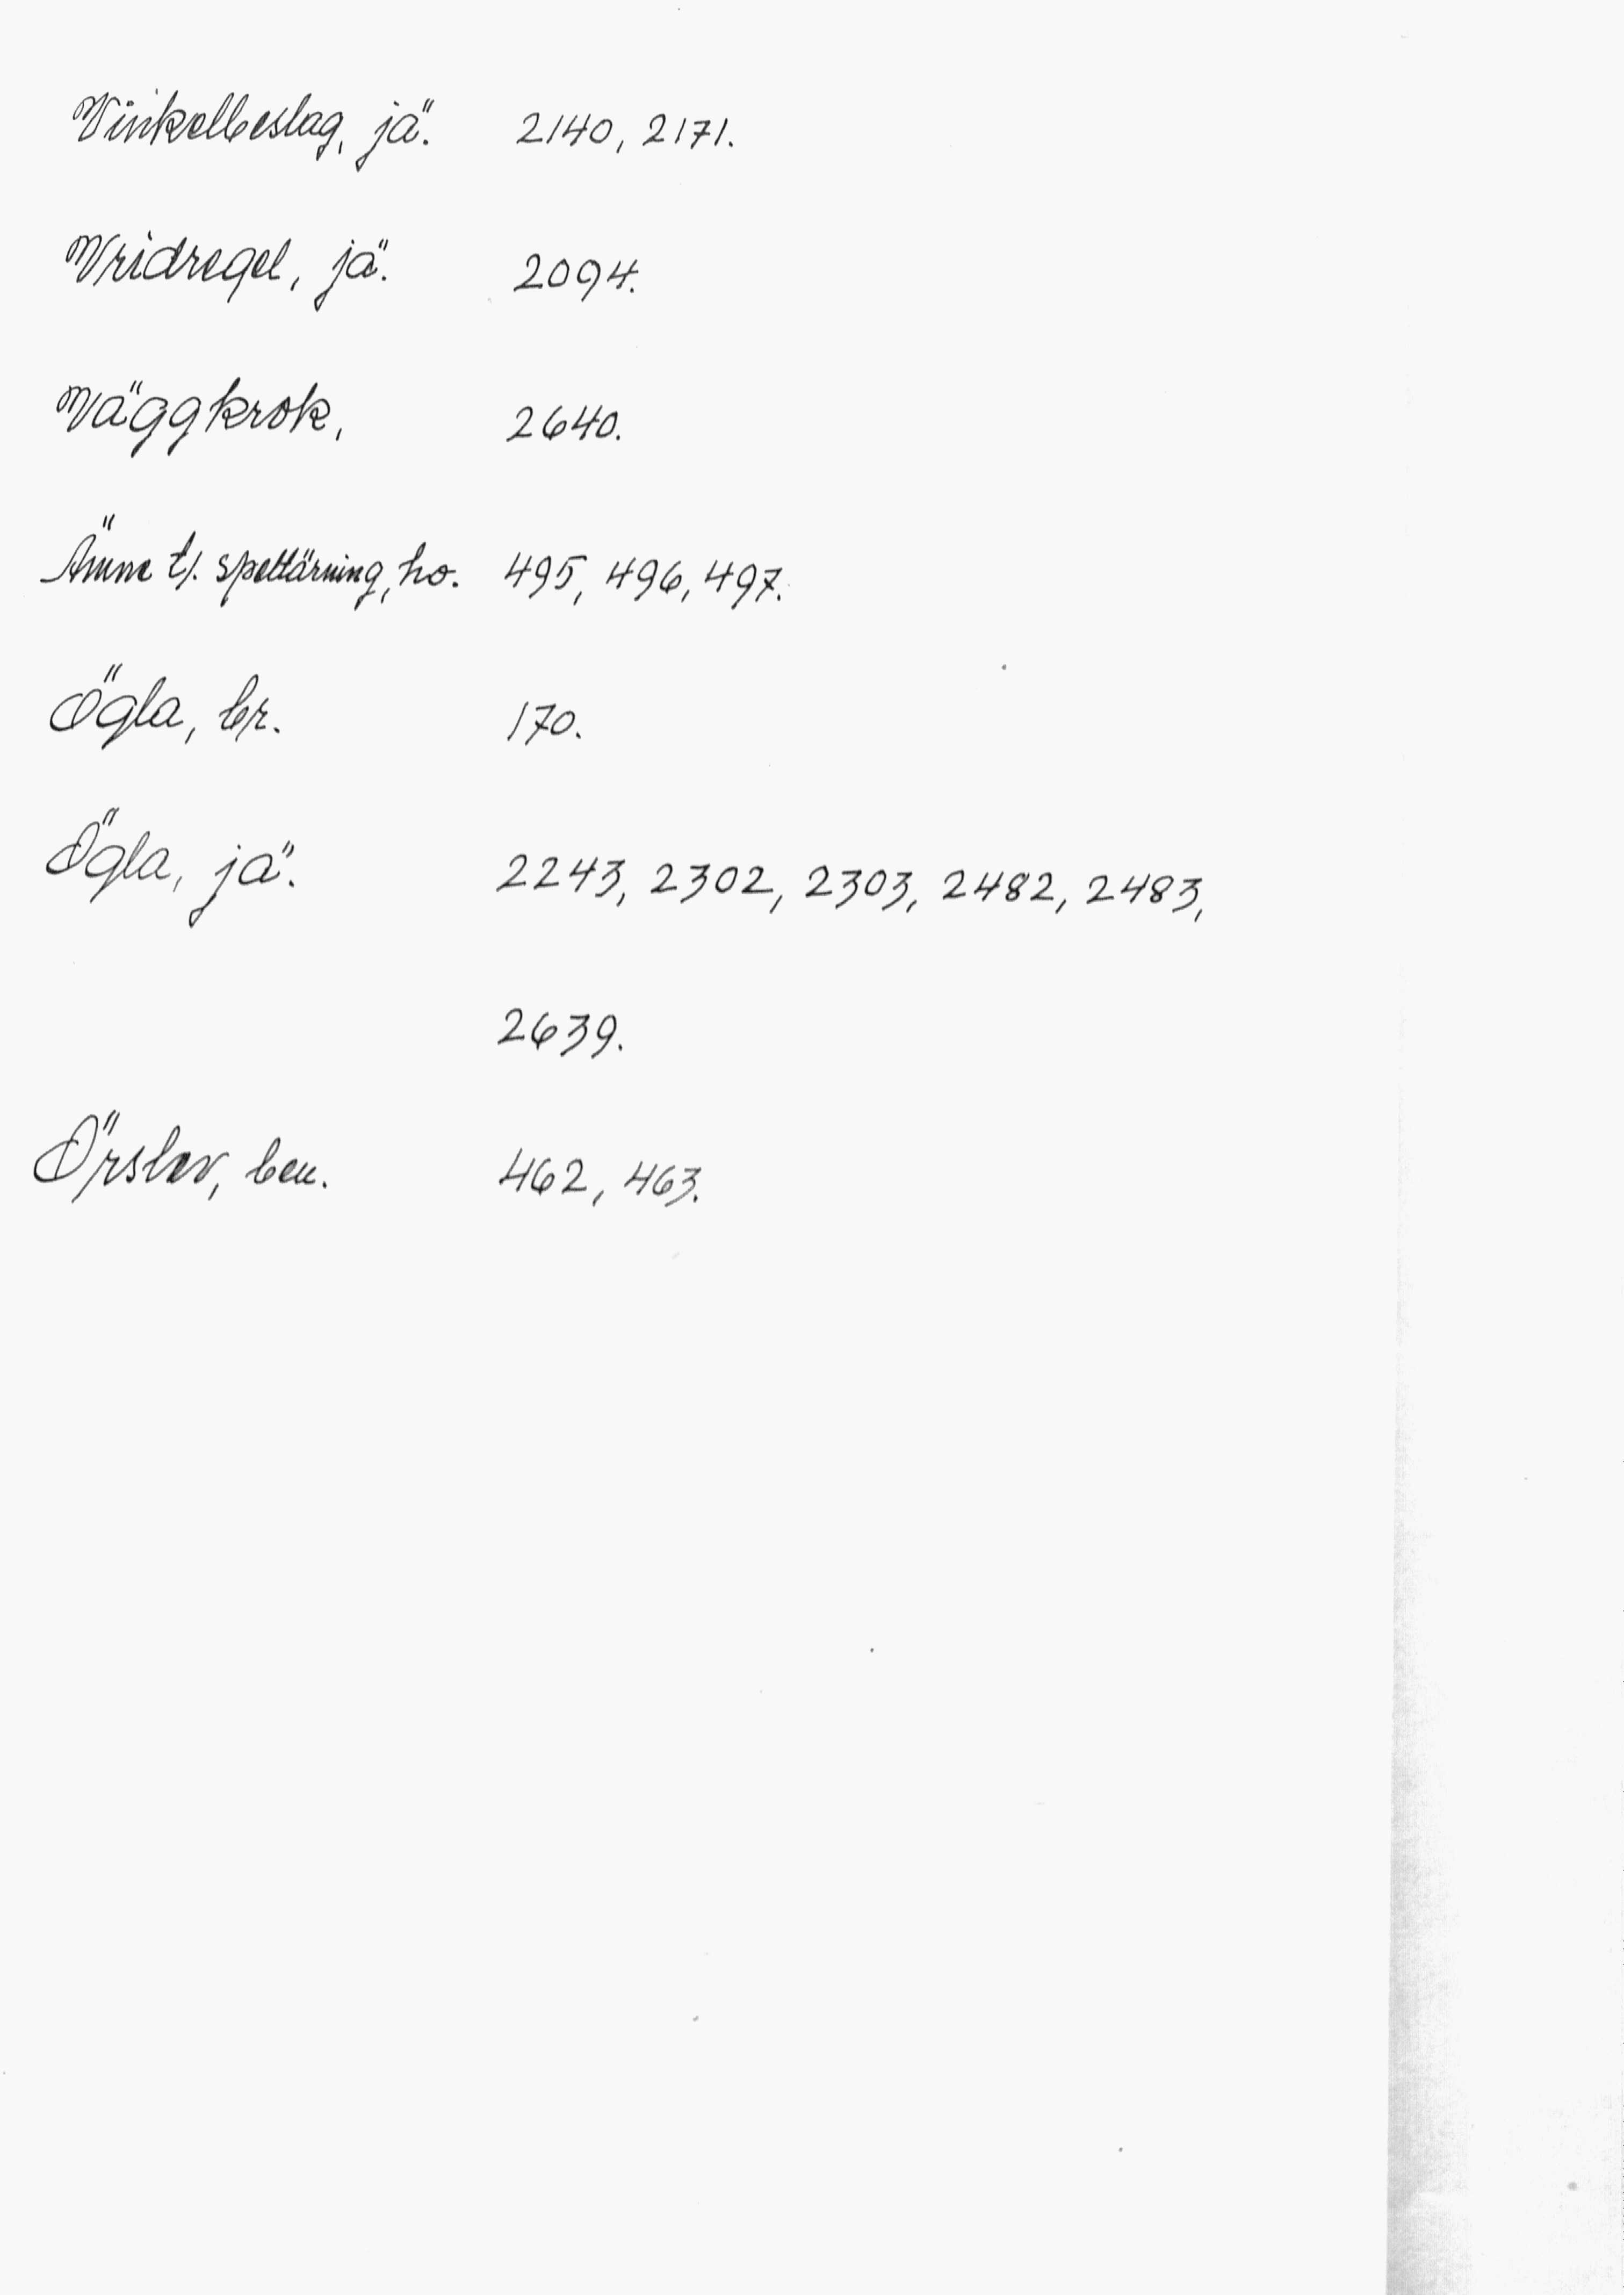 Vinkelbeslag, jä. 2140, 2171.
Vridregel, jä. 2094.
Väggkrok, 2640.
Ämne t/. speltärning, ho. 495, 496, 497.
Ögla, br. 170.
Ögla, jä. 2243, 2302, 2303, 2482, 2483,
2639.
Örslev, ben. 462, 463.